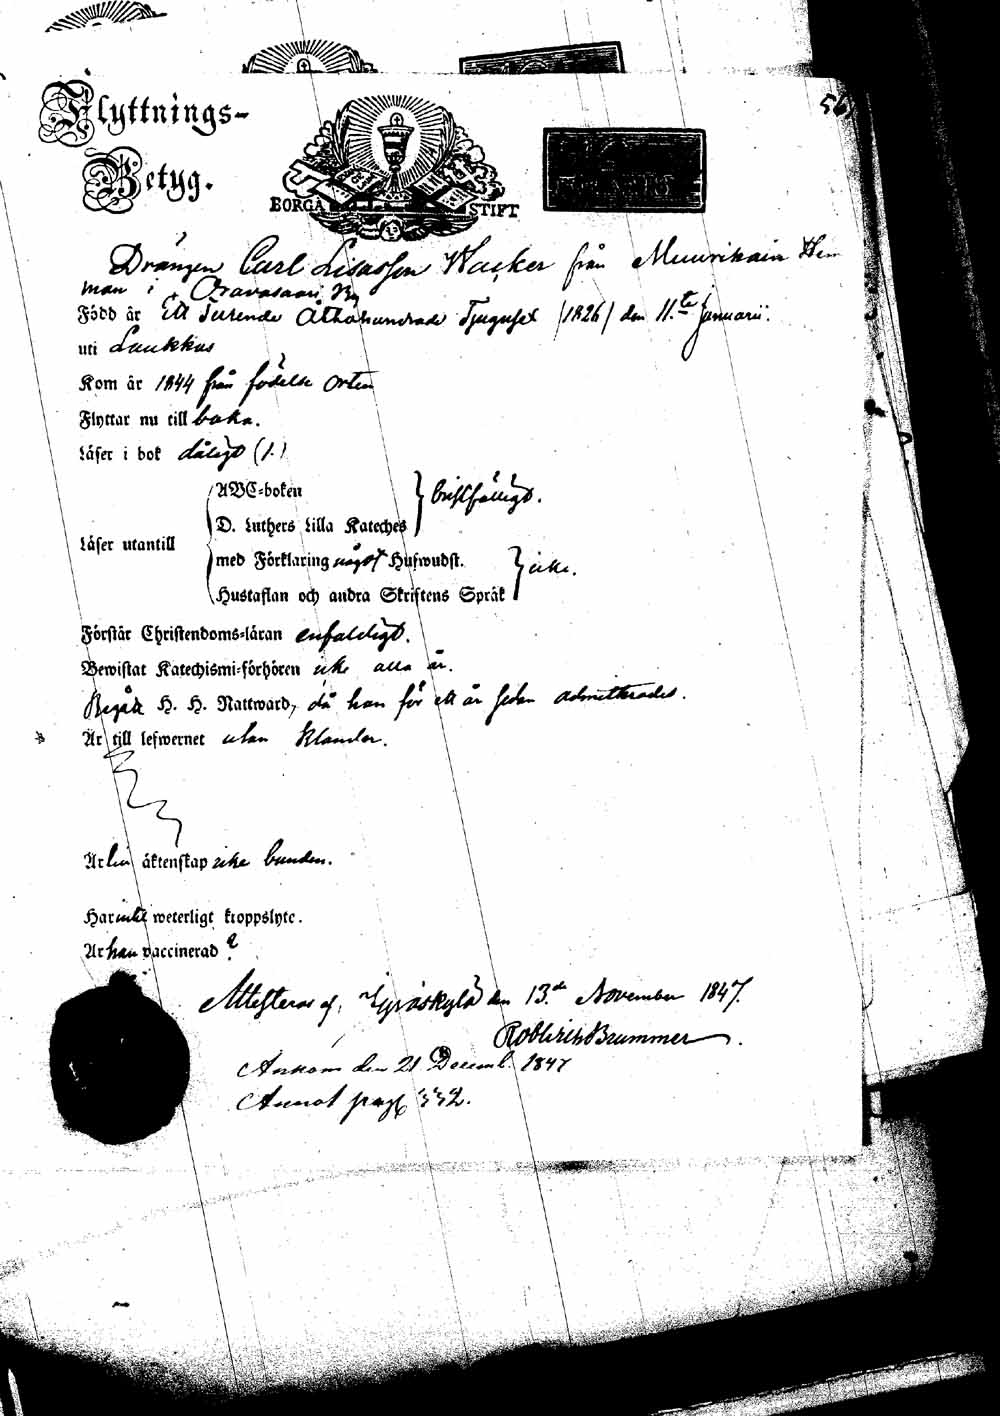 56
Flyttnings-
Betyg.
BORGÅ STIFT
Drängen Carl Lisasson Wacker från Muurikain Hem
man i Oravasaari By
Född år Ett Tusende Åttahundrade Tjugusex /1826/ den 11.te Januarii.
uti Laukkas
Kom år 1844 från födelse orten
Flyttar nu till baka.
Läser i bok dåligt (1.)
ABC-boken
D. Luthers Lilla Kateches } bristfälligt.
Läser utantill
med Förklaring något Hufwudst.
Hustaflan och andra Skriftens Språk } icke.
Förstår Christendoms-läran enfaldigt.
Bewistat Katechismi-förhören icke alla år.
Begått H. H. Nattward, då han för ett år sedan admitterades.
Är till lefwernet utan klander.
Är han i äktenskap icke bunden.
Har intet weterligt kroppslyte.
Är han vaccinerad ?
Attesteras af, Jyväskylä den 13.de November 1847.
Brummer.
Ankom den 21 Decemb. 1847
Annot pag 332.